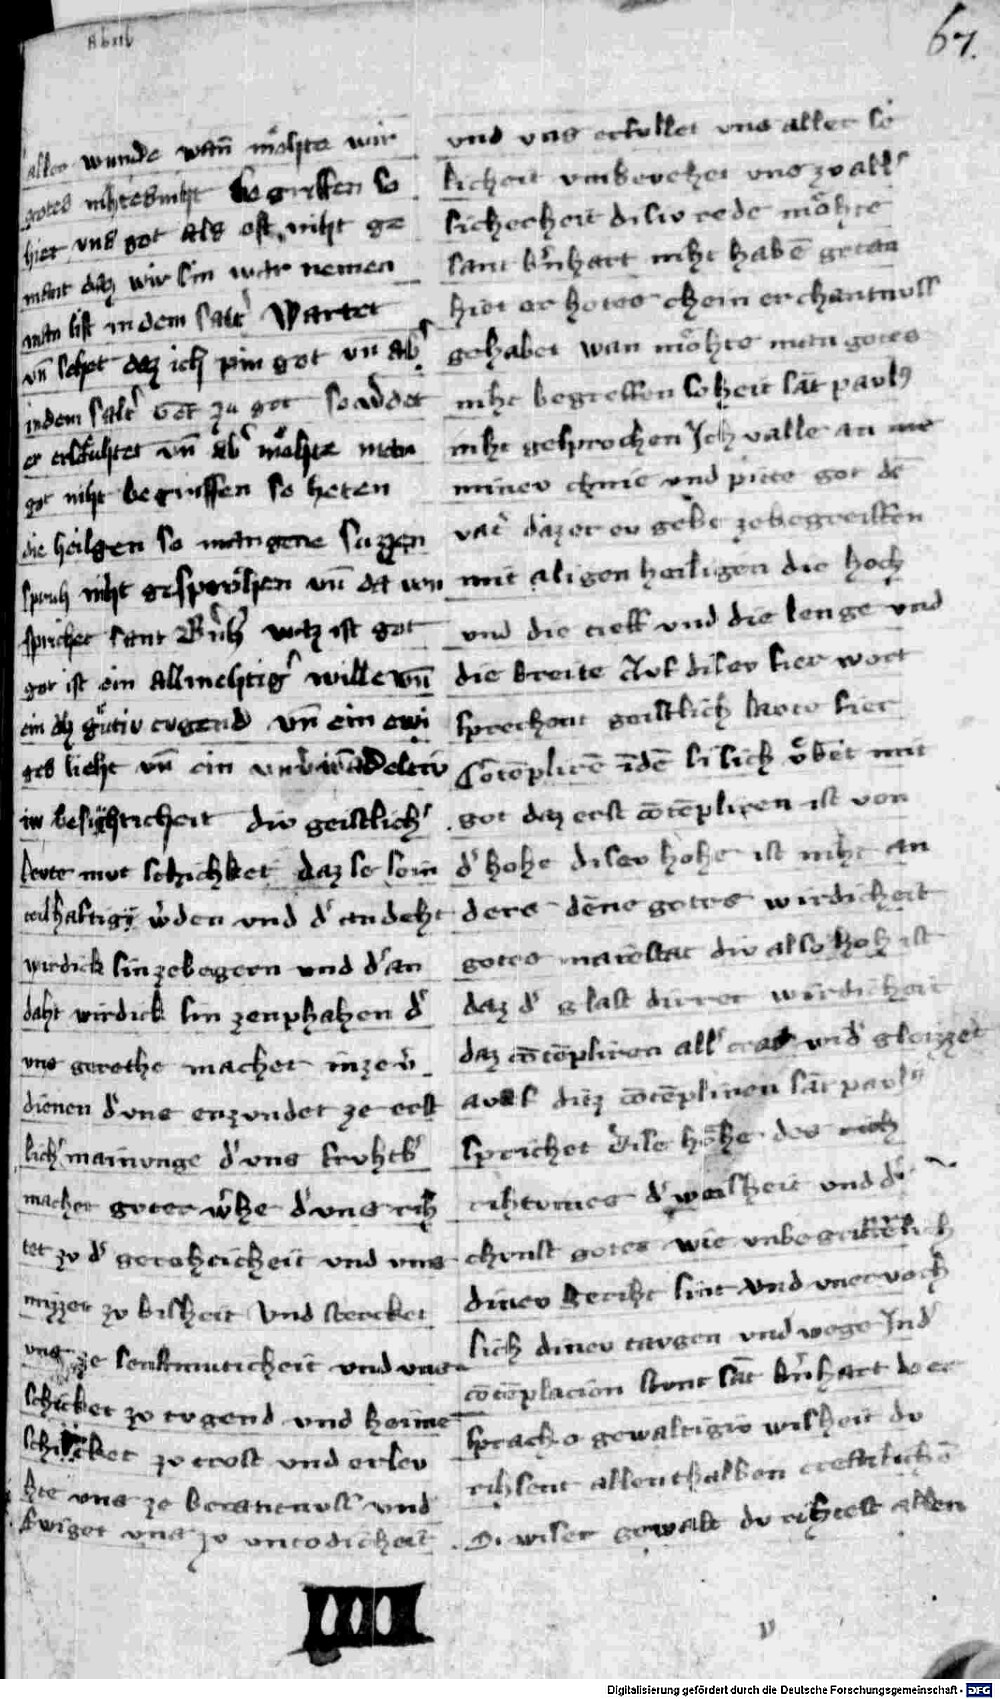 67.
aller wunde wan̄ moͤhte wir
gotes nihtesniht begriffen so
hiet uns got als oft niht ge
mant daz wir sin war nemen
man list in dem salt̉ Wartet
vn̄ sehet daz ich pin got vn ab̉
in dem salt̉ Get zu got so w̉det
er erlẘhtet vn̄ ab̉ moͤhte man
got niht begriffen so heten
die heilgen so mangene suzzen
spruh niht gesproͤhen vn̄ da von
sprichet sant B̉nh̉ waz ist got
got ist ein allmehtig̉ wille vn̄
ein guͤtiv tugend vn̄ ein ewi
ges lieht vn̄ ein
div geistlich̉
levte mvt schichket daz se sein
teilhaftig w̉den und d̉ andeht
wirdick sin zebegern und d̉ an
daht wirdick sin zenphahen d̉
uns gerethe machet in ze v̉
dienen d̉ uns enzvndet ze erst
lich̉ mainunge d̉ uns fruhtb̉
machet goter w̉ke d̉ uns rih
tet zv d̉ gerehticheit und uns
mizzet zv bilheit Und stercket
uns ze senfmuticheit und uns
schicket zv tugend und heime
schicket zv trost und erlev
hte uns ze berantnuss und
Ewiget uns zv untodicheit
und uns erfullet uns aller se
licheit umbevehet uns zv all̉
sicherheit disiv rede moͤhte
sant B̉nhart niht habē getan
hiet er hotes chein erchantnuss
gehabet wan moͤhte man gotes
niht begreffen so heit sāt pavlꝰ
niht gesprochen Ich valle an
minev chnie und pitte got dē
vat̉ daz er ev gebe zebegreiffen
mit aligen heiligen die hoch
und die tieff und die lenge und
die breite Auf disev fier wort
sprechent geistlich levte fier
cōtēplirē indē si sich vͤbēt mit
got daz erst cōtēpliren ist von
d̉ hohe disev hohe ist niht an
ders dēne gotes wirdicheit
gotes maiestat div also hoh ist
daz d̉ glast dirrer wirdicheit
daz cōtēpliren all̉ und̉
auf ditz cōtēpliren sāt pavlꝰ
sprichet disev hohe des
rihtumes d̉ weisheit und d̉
chunst gotes wie unbegriffelich
dinev Geriht sint Und unervoch
lich dinev taugen und wege In d̉
cōtēplacion stunt sāt B̉nhart do er
sprach o gewaltigiv wisheit du
rihsent allenthalben creftlichē
O wiser gewalt du rihtest allen
Digitalisierung gefördert durch die Deutsche Forschungsgemeinschaft - DFG